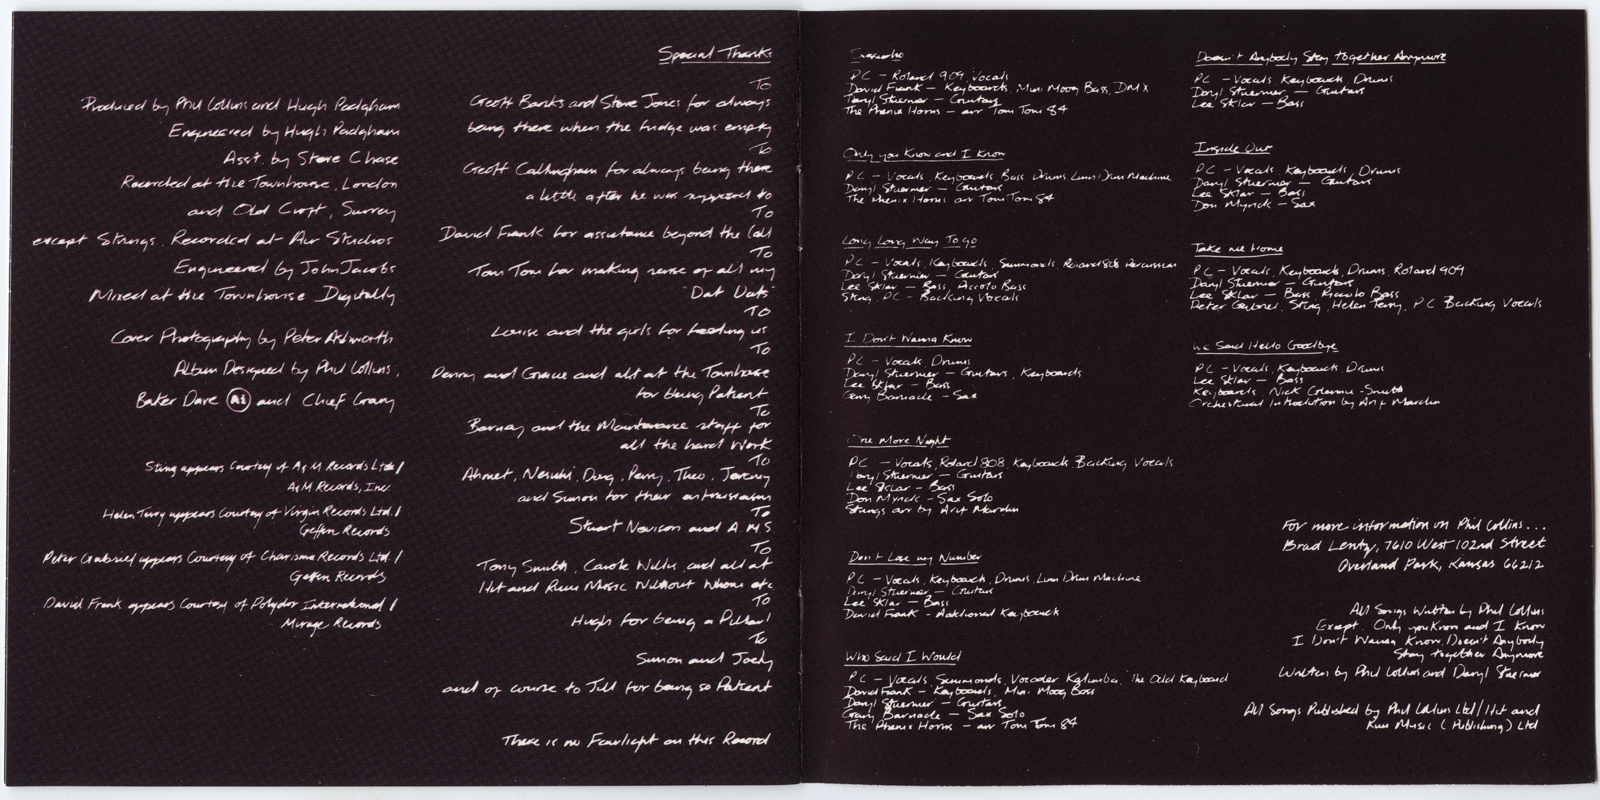 Produced by Phil Collins and Hugh Padgham
Engineered by Hugh Padgham
Asst. by Steve Chase
Recorded at the Townhouse, London
and Old Croft, Surrey
except Strings. Recorded at Air Studios
Engineered by John Jacobs
Mixed at the Townhouse Digitally
Cover Photography by Peter Ashworth
Album Designed by Phil Collins.
Baker Dave and Chief Gary
Sting appears Courtesy of A&M Records Ltd /
A&M Records, Inc.
Helen Terry appears Courtesy of Virgin Records Ltd. /
Geffen Records
Peter Gabriel appears Courtesy of Charisma Records Ltd /
Geffen Records
David Frank appears Courtesy of Polydor International /
Mirage Records
Special Thanks
To
Geoff Banks and Steve Jones for always
being there when the fridge was empty
To
Geoff Callingham for always being there
a little after he was supposed to
To
David Frank for assistance beyond the Call
To
Tom Tom for making sense of all my
"Dat Dats"
To
Louise and the girls for feeding us
To
Penny and Gracie and all at the Townhouse
for being Patient
To
Barney and the Maintenance staff for
all the hard work
To
Ahmet, Nesuhi, Doug, Perry, Theo, Jeremy
and Simon for their enthusiasm
To
Stuart Nevison and A M S
To
Tony Smith, Carole Willis and all at
Hit and Run Music Without Whom etc
To
Hugh for being a Pillar!
To
Simon and Joely
and of course to Jill for being so Patient
There is no Fairlight on this Record
Sussudio
PC - Roland 909, Vocals
David Frank - Keyboards, Mini Moog Bass, DMX
Daryl Stuermer - Guitars
The Phenix Horns - arr Tom Tom 84
Only you Know and I Know
PC - Vocals, Keyboards, Bass Drums Linn Drum Machine
Daryl Stuermer - Guitars
The Phenix Horns arr Tom Tom 84
Long Long Way To go
PC - Vocals, Keyboards, Simmonds, Roland 808 Percussion
Daryl Stuermer - Guitars
Lee Sklar - Bass, Piccolo Bass
Sting, PC - Backing Vocals
I Don't Wanna Know
PC - Vocals, Drums
Daryl Stuermer - Guitars, Keyboards
Lee Sklar - Bass
Gary Barnacle - Sax
One More Night
PC - Vocals, Roland 808, Keyboards, Backing Vocals
Daryl Stuermer - Guitars
Lee Sklar - Bass
Don Myrick - Sax Solo
Strings arr by Arif Mardin
Don't Lose my Number
PC - Vocals, Keyboards, Drums, Linn Drum Machine
Daryl Stuermer - Guitars
Lee Sklar - Bass
David Frank - Additional Keyboards
Who Said I Would
PC - Vocals, Simmonds, Vocoder Kalimba, The Odd Keyboard
David Frank - Keyboards, Mini Moog Bass
Daryl Stuermer - Guitars
Gary Barnacle - Sax Solo
The Phenix Horns - arr Tom Tom 84
Doesn't Anybody Stay together Anymore
PC - Vocals Keyboards, Drums
Daryl Stuermer - Guitars
Lee Sklar - Bass
Inside Out
PC - Vocals, Keyboards, Drums
Daryl Stuermer - Guitars
Lee Sklar - Bass
Don Myrick - Sax
Take me Home
PC - Vocals, Keyboards, Drums, Roland 909
Daryl Stuermer - Guitars
Lee Sklar - Bass Piccolo Bass
Peter Gabriel, Sting, Helen Terry, PC Backing Vocals
We Said Hello Goodbye
PC - Vocals, Keyboards, Drums
Lee Sklar - Bass
Keyboards, Nick Glennie-Smith
Orchestral Introduction by Arif Mardin
For more information on Phil Collins...
Brad Lentz, 7610 West 102nd Street
Overland Park, Kansas 66212
All Songs Written by Phil Collins
Except. Only you Know and I Know
I Don't Wanna Know, Doesn't Anybody
Stay together Anymore
Written by Phil Collins and Daryl Stuermer
All Songs Published by Phil Collins Ltd / Hit and
Run Music (Publishing) Ltd